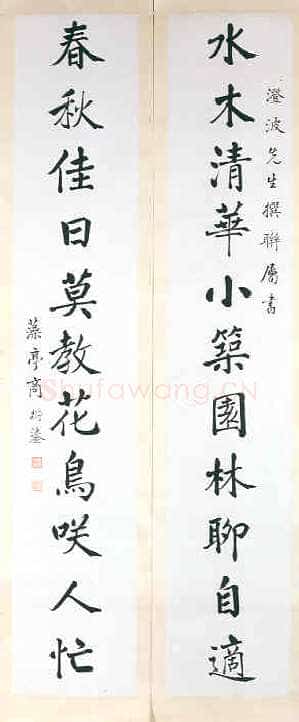 澄波先生撰聯屬書
水木清華小築園林聊自適
春秋佳日莫教花鳥咲人忙
藻亭商衍鎏
Shufawang.CN